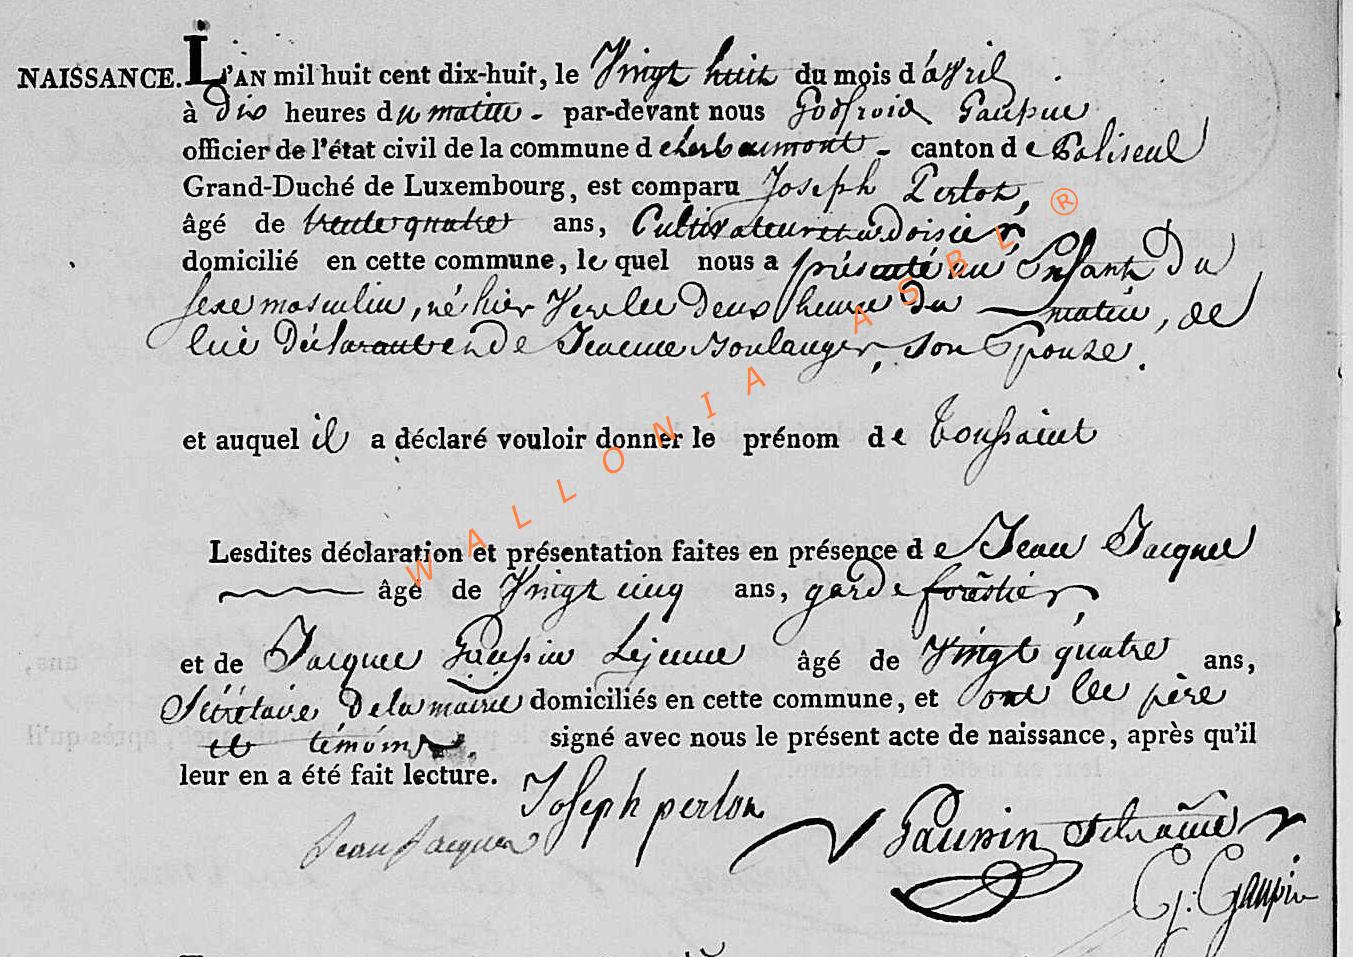 NAISSANCE. L'AN mil huit cent dix-huit, le Vingt huit du mois d'avril
à dix heures du matin - par-devant nous Godfroid Gaupin
officier de l'état civil de la commune d'herbeumont - canton de Paliseul
Grand-Duché de Luxembourg, est comparu Joseph Perlot,
âgé de trente quatre ans, Cultivateur et ardoisier,
domicilié en cette commune, lequel nous a présenté un Enfant du
sexe masculin, né hier Vers les deux heures du matin, de
lui Déclarant et de Jeanne Boulanger, son Epouse.
et auquel il a déclaré vouloir donner le prénom de toussaint
Lesdites déclaration et présentation faites en présence de Jean Jacques
âgé de Vingt cinq ans, garde forêstier,
et de Jacques Gaupin Lejeune âgé de Vingt quatre ans,
Sécrétaire de la mairie domiciliés en cette commune, et ont les père
et témoins signé avec nous le présent acte de naissance, après qu'il
leur en a été fait lecture.
Joseph perlot
Jean Jacques
Gaupin
G: Gaupin
WALLONIA ASBL ®